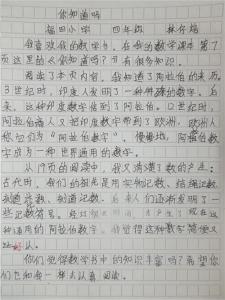 你知道吗
福田小学 四年级 林
我喜欢我的数学书，在我的数学课本第7
页这里的《你知道吗？》有很多知识。
阅读了本页内容，我知道了阿拉伯的来历
3世纪时，印度人发明了一种特殊的数字。后
来，这种印度数字传到了阿拉伯。12世纪时，
阿拉伯商人又把印度数字带到了欧洲，欧洲人
称它们为“阿拉伯数字”。慢慢地，阿拉伯数
字成为一种世界通用的数字。
从19页的阅读中，我又清楚了数的产生：
古代时，我们的祖先是用实物记数、结绳记数、
刻道记数。后来人们逐渐发明了一
些记数符号。 产生了现在这
种通用的阿拉伯数字。 觉得这种数字简便又
认。
你们觉得数学书中的知识丰富吗？希望你
们也和我一样去认真阅读。